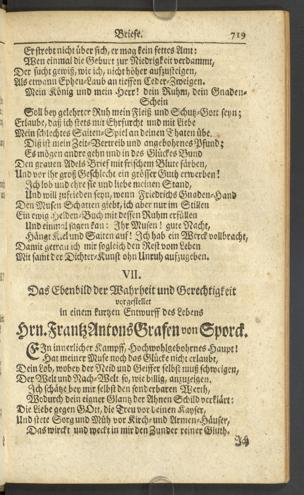 Briefe. 719
Er strebt nicht über sich, er mag kein fettes Amt:
Wen einmal die Geburt zur Niedrigkeit verdammt,
Der sucht gewiß, wie ich, nicht höher aufzusteigen,
Als etwann Epheu-Laub an tieffen Ceder-Zweigen.
Mein König und mein Herr! dein Ruhm, dein Gnaden-
Schein
Soll bey gelehrter Ruh mein Fleiß und Schutz-Gott seyn;
Erlaube, daß ich stets mit Ehrfurcht und mit Liebe
Mein schlechtes Saiten-Spiel an deinen Thaten übe.
Diß ist mein Zeit-Vertreib und angebohrnes Pfund;
Es mögen andre gehn und in des Glückes Bund
Den grauen Adels Brief mit frischem Blute färben,
Und vor ihr groß Geschlecht ein grösser Guth erwerben!
Ich lob und ehre sie und liebe meinen Stand,
Und will zufrieden seyn, wenn Friedrichs Gnaden-Hand
Den Musen Schatten giebt, ich aber nur im Stillen
Ein ewig Helden-Buch mit dessen Ruhm erfüllen
Und einmal sagen kan: Ihr Musen! gute Nacht,
Hängt Kiel und Saiten auf! Ich hab ein Werck vollbracht,
Damit getrau ich mir sogleich den Rest vom Leben
Mit samt der Dichter-Kunst ohn Unruh aufzugeben.
VII.
Das Ebenbild der Wahrheit und Gerechtigkeit
vorgestellet
in einem kurtzen Entwurff des Lebens
Hrn. Frantz Antons Grafen von Sporck.
EIn innerlicher Kampff, Hochwohlgebohrnes Haupt!
Hat meiner Muse noch das Glücke nicht erlaubt,
Dein Lob, wobey der Neid und Geiffer selbst muß schweigen,
Der Welt und Nach-Welt so, wie billig, anzuzeigen.
Ich schätze bey mir selbst den sonderbaren Werth,
Wodurch dein eigner Glantz der Ahnen Schild verklärt:
Die Liebe gegen GOtt, die Treu vor deinen Kayser,
Und stete Sorg und Müh vor Kirch- und Armen-Häuser,
Das wirckt und weckt in mir den Zunder reiner Gluth.